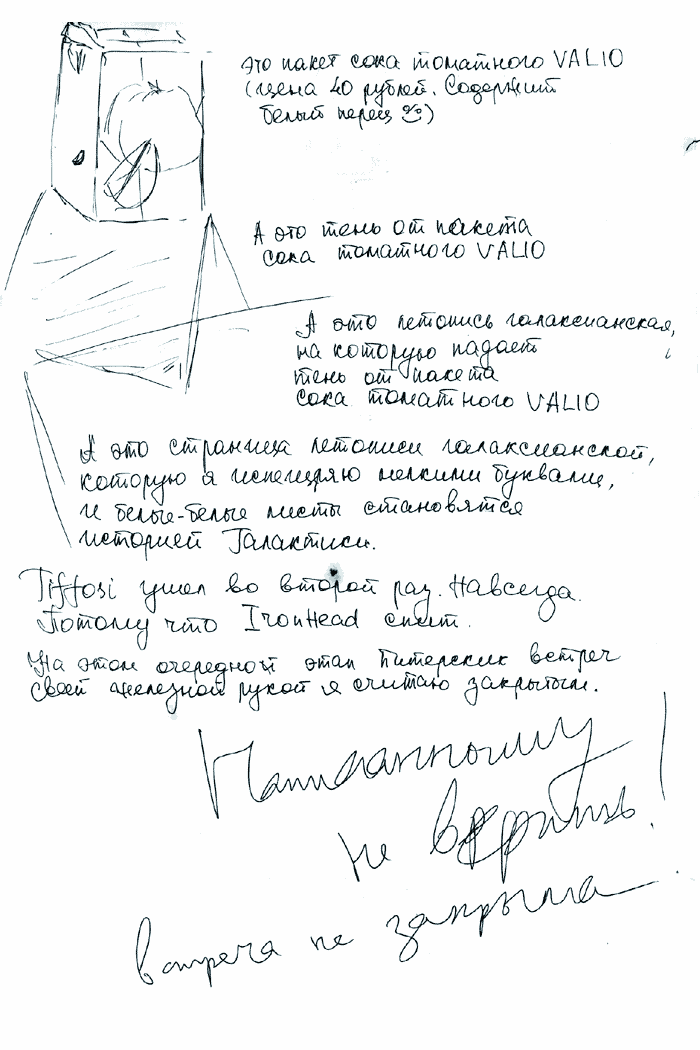 Это пакет сока томатного VALIO
(цена 40 рублей. Содержит
белый перец ☺)
А это тень от пакета
сока томатного VALIO
А это летопись галаксианская,
на которую падает
тень от пакета
сока томатного VALIO
А это страница летописи галаксианской,
которую я испещряю мелкими буквами,
и белые-белые листы становятся
историей Галактики.
Tiffosi ушел во второй раз. Навсегда.
Потому что IronHead спит.
На этом очередной этап Питерских встреч
своей железной рукой я считаю закрытым.
Написанному
не верить!
встреча не закрыта.